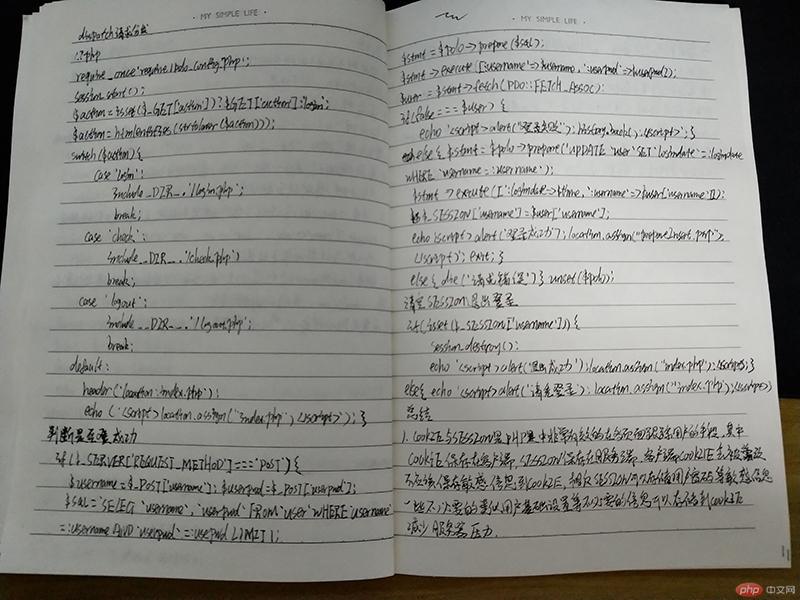 · MY SIMPLE LIFE ·
dispatch请求分发
!?php
require_once 'require/pdo_config.php';
session_start();
$action = isset($_GET['action']) ? $_GET['action'] : 'login';
$action = htmlentities(strtolower($action));
switch($action){
case 'login':
include __DIR__.'/login.php';
break;
case 'check':
include __DIR__.'/check.php')
break;
case 'logout':
include __DIR__.'/logout.php';
break;
default:
header('location:index.php');
echo ('<script>location.assign("index.php");</script>'); }
判断是否登成功
if($_SERVER['REQUEST_METHOD']==='POST'){
$username=$_POST['username']; $userpwd=$_POST['userpwd'];
$sql='SELEC `username`,`userpwd` FROM `user` WHERE `username`
=:username AND `userpwd`=:userpwd LIMIT 1;
· MY SIMPLE LIFE ·
$stmt = $pdo->prepare($sql);
$stmt->execute([':username'=>$username,':userpwd'=>$userpwd]);
$user = $stmt->fetch(PDO::FETCH_ASSOC);
if(false === $user) {
echo '<script>alert("登录失败");history.back();</script>'; }
else { $stmt = $pdo->prepare('UPDATE `user` SET `logindate`=:logindate
WHERE `username`=:username');
$stmt->execute([':logindate'=>time,':username'=>$user['username']]);
$_SESSION['username']=$user['username'];
echo '<script>alert("登录成功");location.assign(".php");
</script>'; exit; }
else { die('请求错误') } unset($pdo);
清空SESSION退出登录
if(isset($_SESSION['username'])){
session_destroy();
echo '<script>alert("退出成功");location.assign("index.php");</script>';}
else{ echo '<script>alert("请先登录");location.assign("index.php);</script>}
总结
1. COOKIE与SESSION是PHP中非常的在各页面跟踪用户的手段,其中
COOKIE保存在客户端,SESSION保存在服务器端,客户端COOKIE
不应该保存敏感信息到COOKIE,SESSION可以存储用户密码等敏感信息
一些不必要的用户基础设置等不必要的信息可以存储到COOKIE
减少服务器压力.
php 中文网